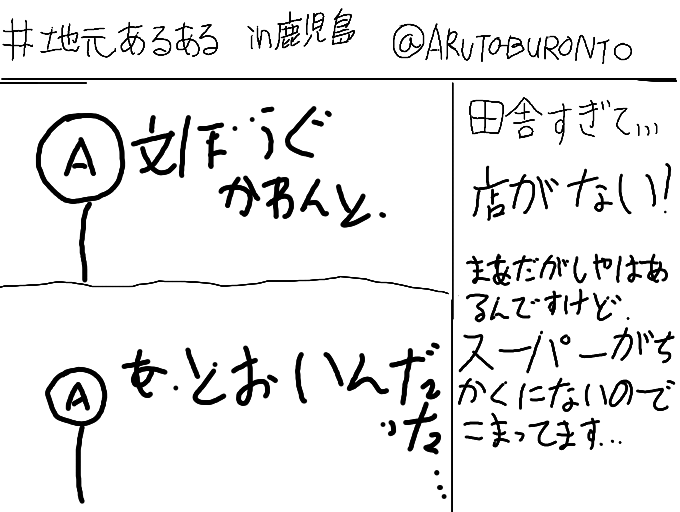 #地元あるある in鹿児島 @ARUTOBURONTO
A
文ぼうぐ
かわんと.
A
あ.とおいんだ
った
...
田舎すぎて...
店がない!
まあだがしやはあ
るんですけど.
スーパーがち
かくにないので
こまってます...